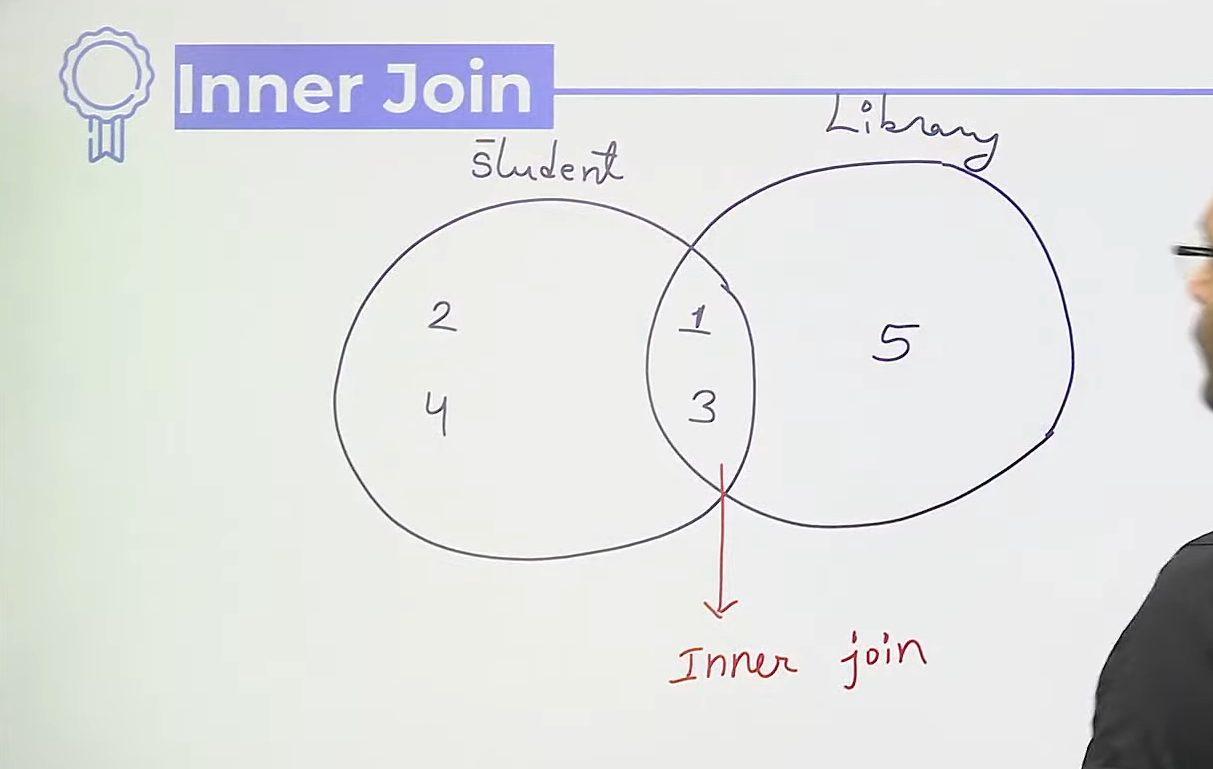 Inner Join
Student
Library
2
1
5
4
3
Inner join